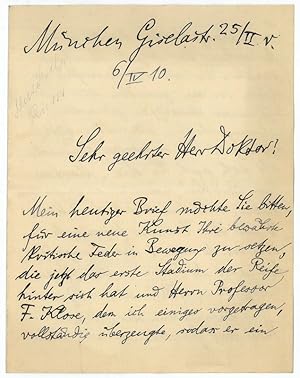 München Giselastr. 25/II r.
6/IV 10.
Sehr geehrter Herr Doktor!
Mein heutiger Brief möchte Sie bitten,
für eine neue Kunst Ihre bewährte
kritische Feder in Bewegung zu setzen,
die jetzt das erste Stadium der Reife
hinter sich hat und Herrn Professor
F. Klose, dem ich einiges vorgetragen,
vollständig überzeugte, sodass er ein